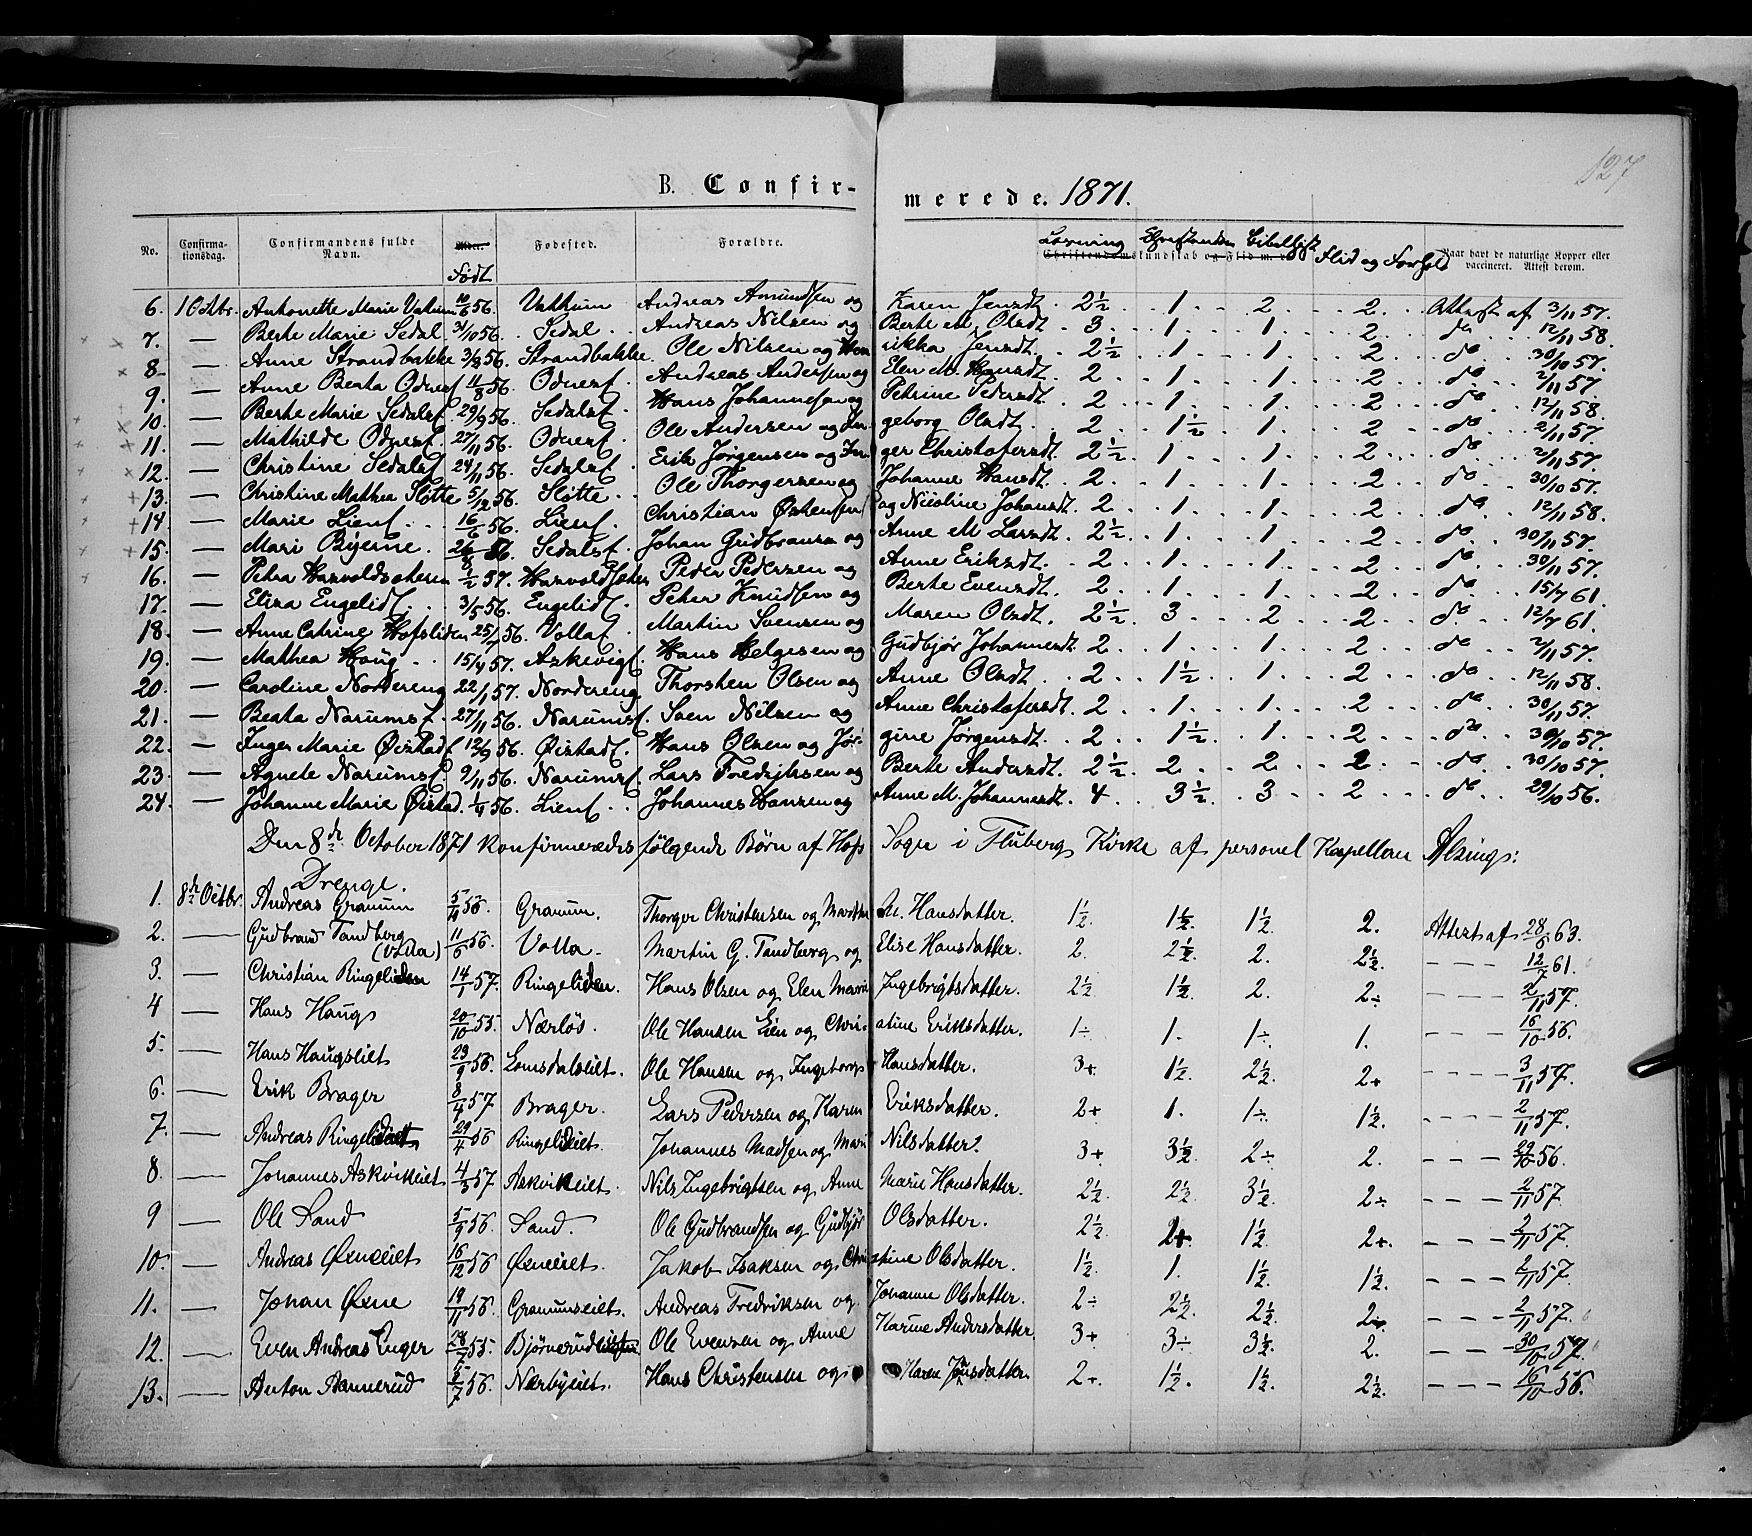 127
B. Confirmerede. 1871.
No. Confirmationsdag. Confirmandens fulde Navn. Alder. Født Fødested. Forældre. Christendomskundskab og Flid m. v. Læsning Bibelhist Flid og Forhold Naar havt de naturlige Kopper eller vaccineret. Attest derom.
6. 1 Octbr. Antonette Marie 10/6 56. Andreas Amundsen og Karen Jensdt. 2½ 1 2 2. Attest af 3/11 57.
7. — Berte Marie Sedal 31/10 56. Sedal Andreas Nilsen og Berte M. Olsdt. 3 1 1 2 do 12/11 58.
8. — Anne Strandbakke 3/8 56. Strandbakke. Ole Nilsen og Henrikka Jensdt. 2½ 1 1 2 do 30/10 57.
9. — Anne Beata Odnesf 11/8 56. Odnesf. Andreas Andersen og Elen M. Hansdt. 2 1 1 2 do 2/11 57
10. — Berte Marie Sedalsf. 29/9 56. Sedalsf. Hans Johannesen og Petrine Pedersdt. 2 1 1 2 do 12/11 58.
11. — Mathilde Odnesf. 27/11 56. Odnesf. Ole Andersen og Ingeborg Olsdt. 2 1½ 1 2 do 2/11 57.
12. — Christine Sedalsf 24/11 56. Sedalsf. Erik Jørgensen og Inger Christofersdt. 2½ 1 1 2 do 2/11 57.
13. — Christine Mathea Slötte 5/12 56. Slötte Ole Thorgersen og Johanne Hansdt. 2 1 1 2 do 30/10 57.
14. — Marie Lienf. 16/6 56. Lienf. Christian Østensen og Nicoline Johansdt. 2 1 1 2. do 12/11 58.
15. — Mari Bjerne. 26/8 56. Sedalsf. Johan Gudbransen og Anne M Larsdt. 2½ 1 1 2 do 30/11 57.
16. — Petra Harvoldsæteren 2/2 57. Harvoldsæter Peder Pedersen og Anne Eriksdt. 2 1 1 2 do 30/11 57.
17. — Eliza Engelidf. 3/5 56. Engelidf. Peter Knudsen og Berte Evensdt. 2 1 1 2 do 15/7 61.
18. — Anne Catrine Hofsliden 25/7 56. Vollaf. Martin Svensen og Maren Olsdt. 2½ 3 2 2 do 12/7 61.
19. — Mathea Haug 15/4 57. Askevigf. Hans Helgesen og Gudbjør Johannesdt. 2 1 1 2 do 2/11 57.
20. — Caroline Nordereng 22/1 57. Nordereng Thorsten Olsen og Anne Olsdt. 2 1½ 1 2 do 12/11 58.
21. — Beata Narumsf. 27/11 56. Narumsf. Sven Nilsen og Anne Christofersdt. 2 1 1 2 do 30/11 57.
22. — Inger Marie Øistadf 12/9 56. Øistadf. Hans Olsen og Jørgine Jørgensdt. 2 1½ 1 2 do 30/10 57.
23. — Agnete Narumsf. 9/11 56. Narumsf. Lars Fredriksen og Berte Andersdt. 2½ 2 2 2 do 30/10 57.
24. — Johanne Marie Øistad. 1/4 56. Lienf. Johannes Hansen og Anne M. Johannesdt. 4 3½ 3 2 do 29/10 56.
Den 8de October 1871 konfirmeredes følgende Børn af Hofs Sogn i Fluberg Kirke af personel Kapellan Alzing:
Drenge.
1. 8de Octbr. Andreas Granum 5/4 56. Granum. Thorger Christensen og M. Hansdatter. 1½ 1½ 1½ 2. Attest af 28/6 63.
2. — Gudbrand Tandberg (Volla) 11/6 56. Volla Martin G. Tandberg og Elise Hansdatter. 2. 2½ 2. 2½. – – – 12/7 61.
3. — Christian Ringeliden 14/1 57. Ringeliden. Hans Olsen og Elen Marie Ingebrigtsdatter. 2½ 1½ 2. 2÷ – – – 2/11 57.
4 — Hans Haugs 20/10 55. Nærløs. Ole Hansen Lien og Christine Eriksdatter. 1÷ 1. 1÷ 1. – – – 16/10 56.
5. — Hans Haugseiet 23/9 56. Lomsdalseiet. Ole Hansen og Ingeborg Hansdatter. 3+ 1½ 2½ 2+ – – – 3/11 57.
6. — Erik Brager 8/4 57 Brager. Lars Pedersen og Karen Eriksdatter. 2+ 1. 1÷ 1½. – – – 2/11 57.
7. — Andreas Ringelideiet 29/4 56 Ringelideiet Johannes Madsen og Mari Nilsdatter. 3+ 3½ 2÷ 2. – – – 29/10 56.
8. — Johannes Askvikeiet 4/3 57 Askvikeiet. Nils Ingebrigtsen og Anne Marie Hansdatter. 2½ 2½ 3½ 2÷ – – – 2/11 57.
9 — Ole Sand 5/9 56. Sand. Ole Gudbrandsen og Gudbjør Olsdatter. 2½ 2+ 1½ 2+. – – – 2/11 57.
10. — Andreas Øxneeiet 16/12 56 Øxneeiet. Jakob Isaksen og Christine Olsdatter. 1½ 1. 1½ 1½. – – – 2/11 57.
11. — Johan Øxne 19/11 56. Granumseiet. Andreas Fredriksen og Johanne Olsdatter. 2÷ 2½ 2½ 2÷ – – – 2/11 57.
12. — Even Andreas Enger 28/7 55. Ole Evensen og Anne Karine Andersdatter. 3+ 3÷ 3½ 2. – – – 30/10 57.
13. — Anton Aannerud 5/7 56. Nærbyeiet. Hans Christensen og Karen Jensdatter. 2+. 1½. 1½. 2½. – – – 16/10 56.